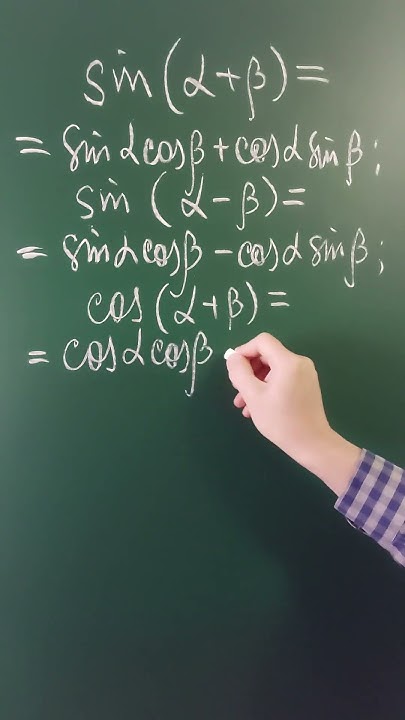 sin (α+β) =
= sin α cos β + cos α sin β ;
sin (α - β) =
= sin α cos β - cos α sin β ;
cos (α + β) =
= cos α cos β